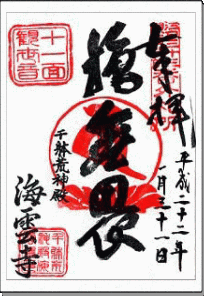 奉拝
平成二十二年
一月三十一日
施無畏
千躰荒神殿
十一面
観世音
海雲寺